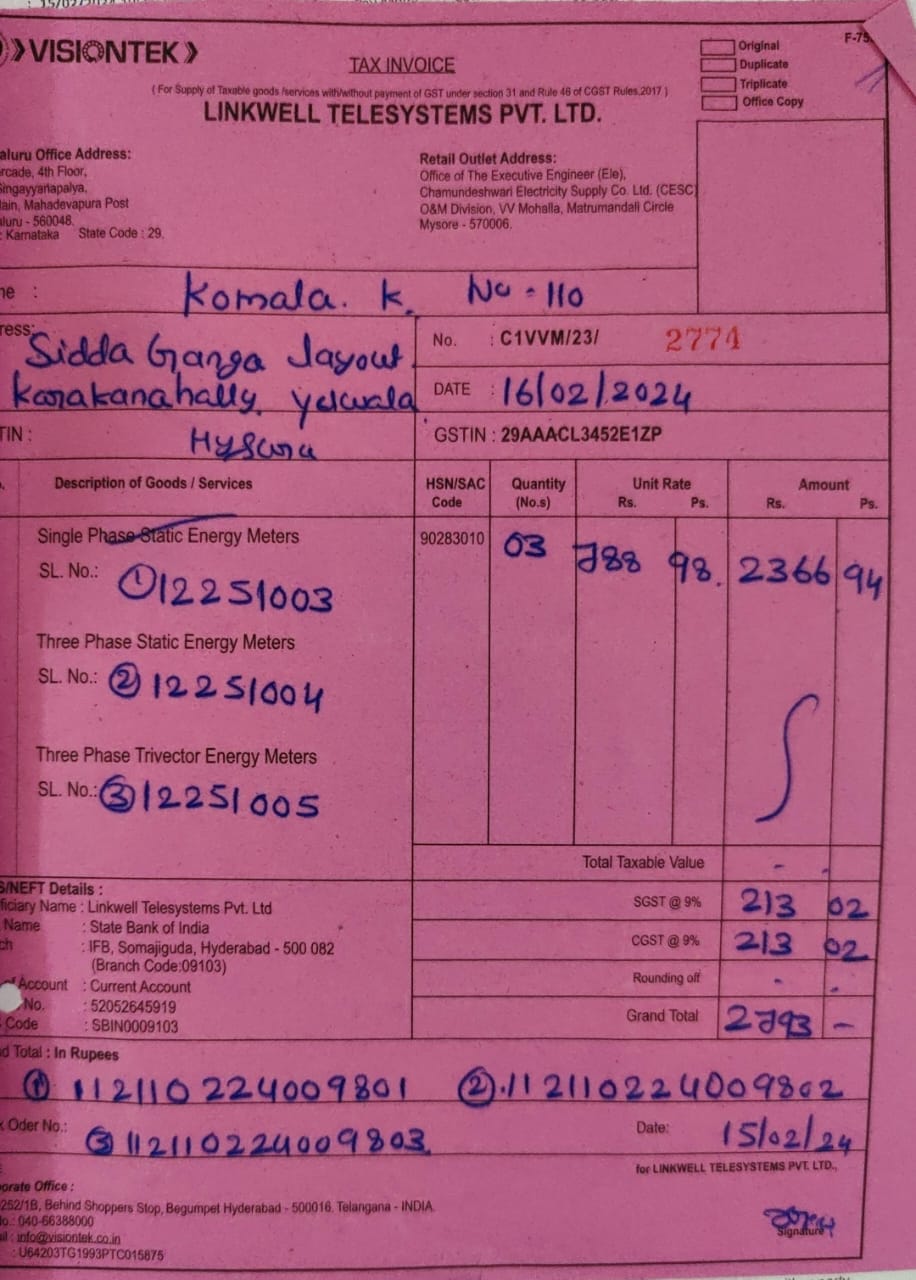 VISIONTEK
TAX INVOICE
( For Supply of Taxable goods /services with/without payment of GST under section 31 and Rule 46 of CGST Rules,2017 )
LINKWELL TELESYSTEMS PVT. LTD.
Original
Duplicate
Triplicate
Office Copy
F-75
aluru Office Address:
rcade, 4th Floor,
Singayyanapalya,
ain, Mahadevapura Post
aluru - 560048.
: Karnataka State Code : 29.
Retail Outlet Address:
Office of The Executive Engineer (Ele),
Chamundeshwari Electricity Supply Co. Ltd. (CESC)
O&M Division, VV Mohalla, Matrumandali Circle
Mysore - 570006.
me : Komala. K. No - 110
ress: Sidda Ganga Layout
Karakanahally, Yelwala
No. : C1VVM/23/ 2774
DATE : 16/02/2024
TIN : Mysuru
GSTIN : 29AAACL3452E1ZP
Description of Goods / Services HSN/SAC Code Quantity (No.s) Unit Rate Rs. Ps. Amount Rs. Ps.
Single Phase Static Energy Meters 90283010 03 788 98. 2366 94
SL. No.: ① 12251003
Three Phase Static Energy Meters
SL. No.: ② 12251004
Three Phase Trivector Energy Meters
SL. No.: ③ 12251005
Total Taxable Value -
SGST @ 9% 213 02
CGST @ 9% 213 02
Rounding off -
Grand Total 2793 -
S/NEFT Details :
ficiary Name : Linkwell Telesystems Pvt. Ltd
Name : State Bank of India
ch : IFB, Somajiguda, Hyderabad - 500 082
(Branch Code:09103)
of Account : Current Account
No. : 52052645919
Code : SBIN0009103
d Total : In Rupees
① 112110224009801 ② 112110224009802
k Oder No.: ③ 112110224009803
Date: 15/02/24
for LINKWELL TELESYSTEMS PVT. LTD.,
orate Office :
252/1B, Behind Shoppers Stop, Begumpet Hyderabad - 500016. Telangana - INDIA.
No.: 040-66388000
il : info@visiontek.co.in
: U64203TG1993PTC015875
Signature